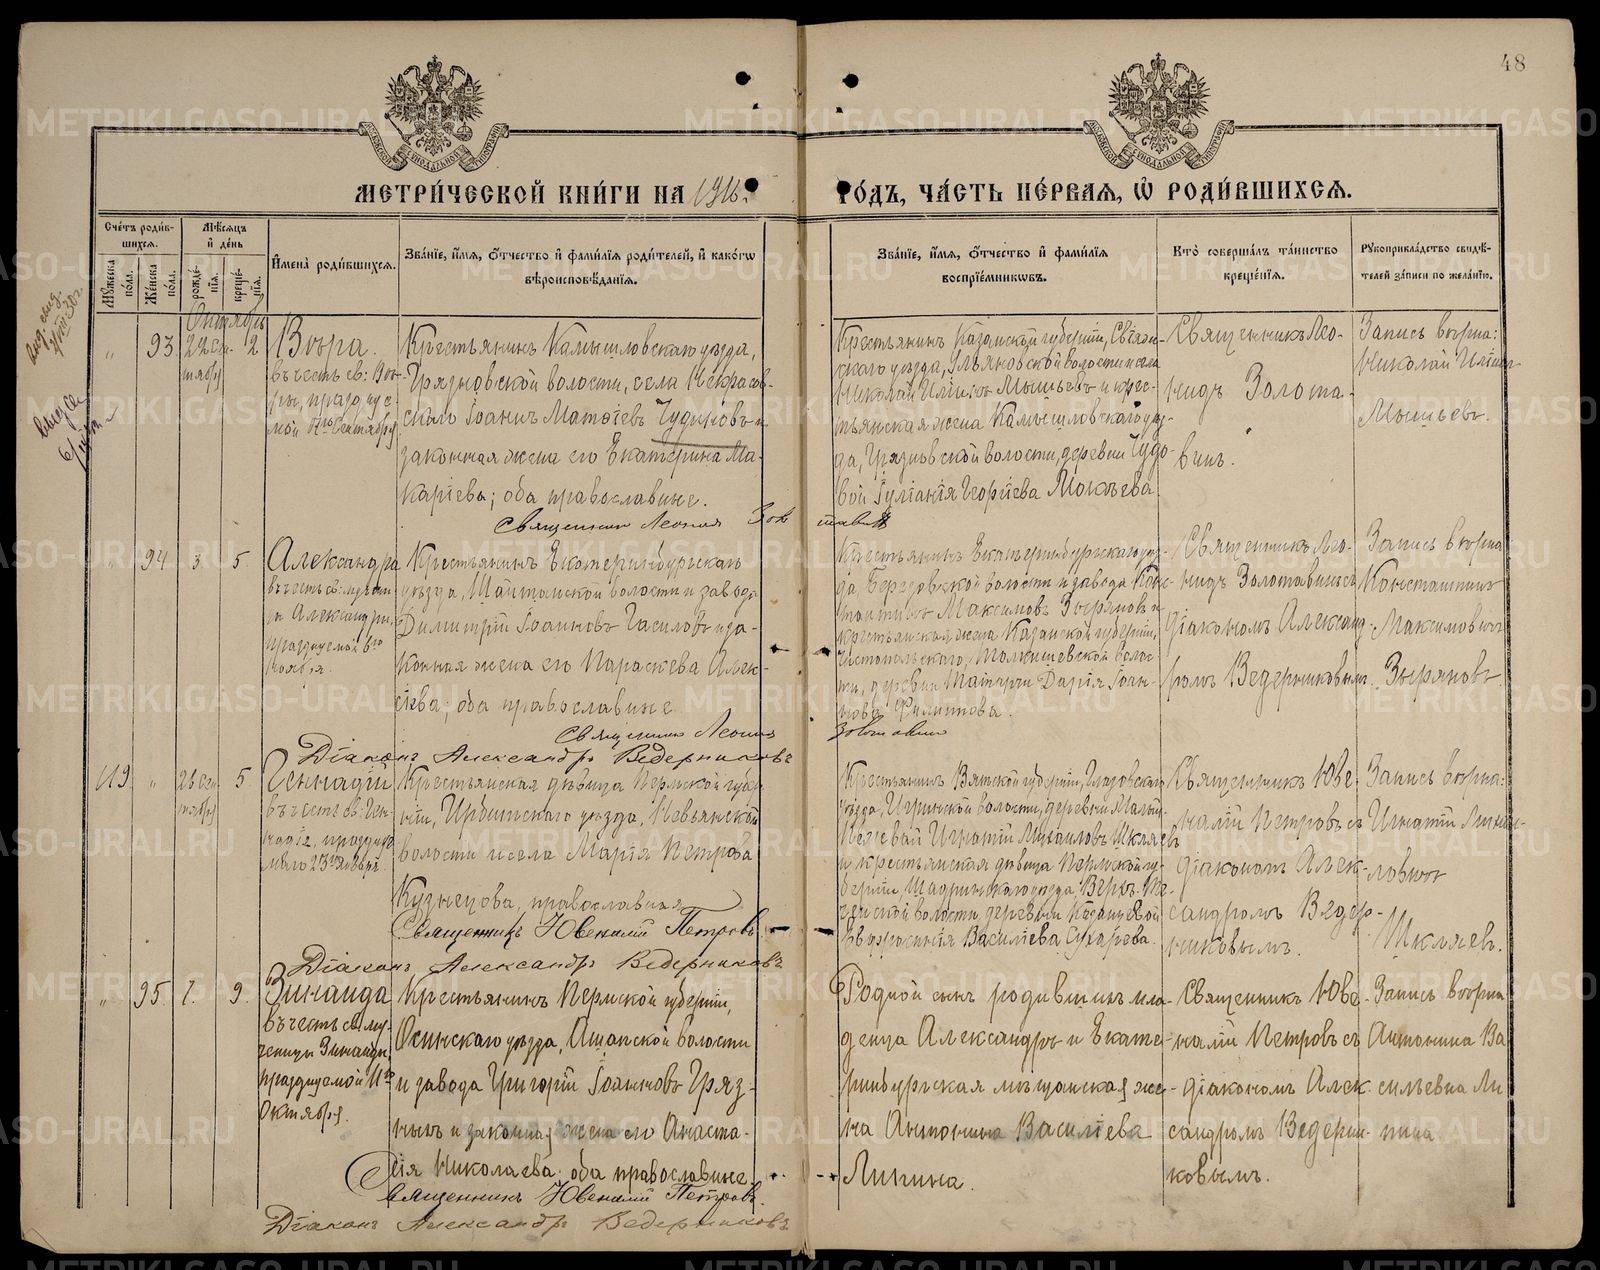 48
МЕТРИ́ЧЕСКОЙ КНИ́ГИ НА 1916.
ГО́ДЪ, ЧА́СТЬ ПЕ́РВАЯ, Ѡ҆ РОДИ́ВШИХСЯ.
Сче́тъ роди́в-
шихся.
Му́жеска
по́ла.
Же́нска
по́ла.
Мѣ́сяцъ
и҆ де́нь
рожде́-
нія.
креще́-
нія.
И҆мена̀ роди́вшихся.
Зва́ніе, и҆́мя, ѻ҆́тчество и҆ фами́лія роди́телей, и҆ како́гѡ
вѣроисповѣ́данія.
Зва́ніе, и҆́мя, ѻ҆́тчество и҆ фами́лія
воспріе́мниковъ.
Кто̀ соверша́лъ та́инство
креще́нія.
Рꙋкоприкла́дство свидѣ́-
телей за́писи по жела́нію.
Октябрь
„ 93 22 Сен-
тября 2
Вѣра.
въ честь св: Вѣ-
ры, празднуе-
мой 17го Сентября
Крестьянинъ Камышловскаго уѣзда,
Грязновской волости, села Некрасов-
скаго Іоаннъ Матѳіевъ Чудиновъ и
законная жена его Екатерина Ма-
каріева; оба православные.
Священникъ Леонид Золотавинъ
Крестьянинъ Казанской губерніи, Свіяж-
скаго уѣзда, Ульяновской волости и села
Николай Ильинъ Мышьевъ и крес-
тьянская жена Камышловскаго уѣз-
да, Грязновской волости, деревни Чудо-
вой Іуліанія Георгіева Мокѣева
Священникъ Лео-
нидъ Золота-
винъ.
Запись вѣрна:
Николай Ильинъ
Мышьевъ.
„ 94 3 5
Александра
въ честь св: мучени-
цы Александры,
празднуемой 6го
Ноября.
Крестьянинъ Екатеринбургскаго
уѣзда, Шайтанской волости и завода
Димитрій Іоанновъ Гасиловъ и за-
конная жена его Параскева Алек-
сіева; оба православные
Священникъ Леонид Золотавинъ
Діаконъ Александръ Ведерниковъ
Крестьянинъ Екатеринбургскаго уѣз-
да, Березовской волости и завода Кон-
стантинъ Максимовъ Зыряновъ и
крестьянская жена Казанской губерніи,
Чистопольскаго, Толкишевской волос-
ти, деревни Татарчи Дарія Іоан-
нова Филипова.
Священникъ Лео-
нидъ Золотавинъ съ
діакономъ Александ-
ромъ Ведерниковымъ.
Запись вѣрна
Константинъ
Максимовичъ
Зыряновъ
119. „ 26 Сен-
тября 5
Геннадій
въ честь св: Ген-
надіе, празднуе-
маго 23го Января.
Крестьянская дѣвица Пермской губер-
ніи, Ирбитскаго уѣзда, Невьянской
волости и села Марія Петрова
Кузнецова, православная
Священникъ Ювеналій Петровъ
Діаконъ Александръ Ведерниковъ
Крестьянинъ Вятской губерніи, Глазовскаго
уѣзда, Игринской волости, деревни Малый
Игнатій Михайловъ Шкляевъ
и крестьянская дѣвица Пермской гу-
берніи Шадринскаго уѣзда, Верхъ-Те-
ченской волости, деревни
Евфросинія Василіева Сухарева.
Священникъ Юве-
налій Петровъ съ
діакономъ Алек-
сандромъ Ведер-
никовымъ.
Запись вѣрна:
Игнатій Михаи-
ловичъ
Шкляевъ.
„ 95. 7. 9.
Зинаида
въ честь св: му-
ченицы Зинаиды,
празднуемой 11го
Октября.
Крестьянинъ Пермской губерніи,
Осинскаго уѣзда, Ашапской волости
и завода Григорій Іоанновъ Гряз-
ныхъ и законная жена его Анаста-
сія Николаева: оба православные.
Священникъ Ювеналій Петровъ.
Діаконъ Александръ Ведерниковъ
Родной сынъ родившихъ мла-
денца Александръ и Екате-
ринбургская мѣщанская же-
на Антонина Василіева
Липина.
Священникъ Юве-
налій Петровъ съ
діакономъ Алек-
сандромъ Ведерни-
ковымъ.
Запись вѣрна
Антонина Ва
сильевна Ли
пина